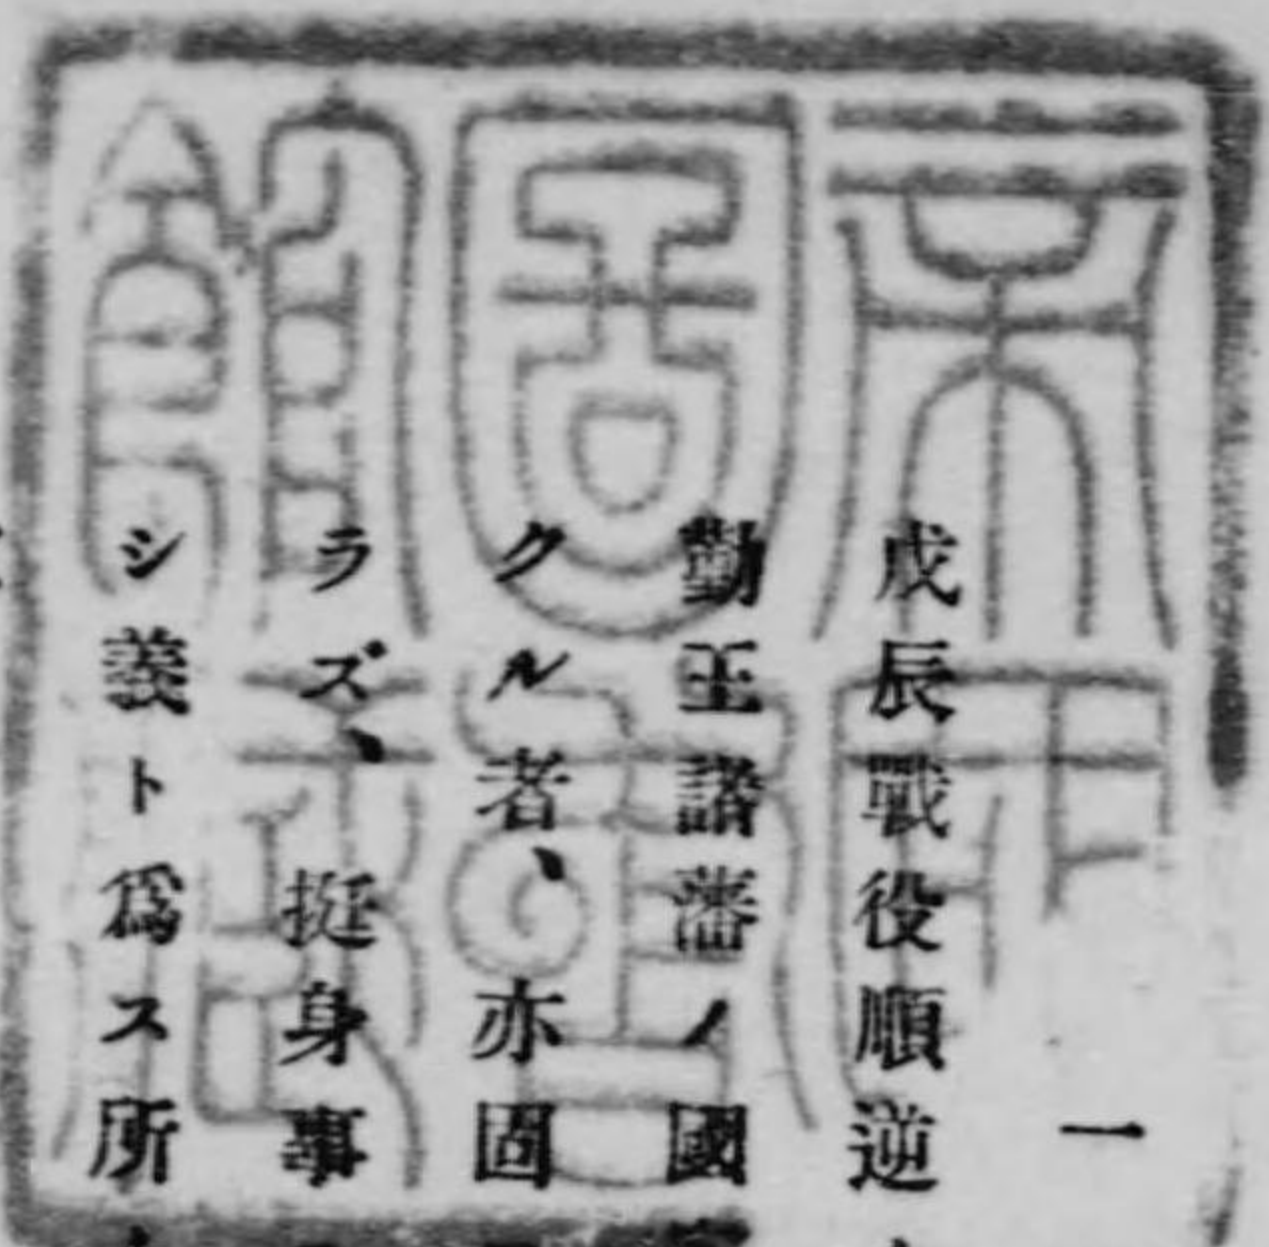 一
戊辰戰役順逆
勤王諸藩ノ國
クル者、亦固
ラズ、挺身事
シ義ト爲ス所
帝國圖書館藏